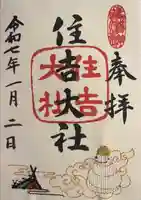 奉拝
住吉大社
住吉
大社
令和七年一月二日